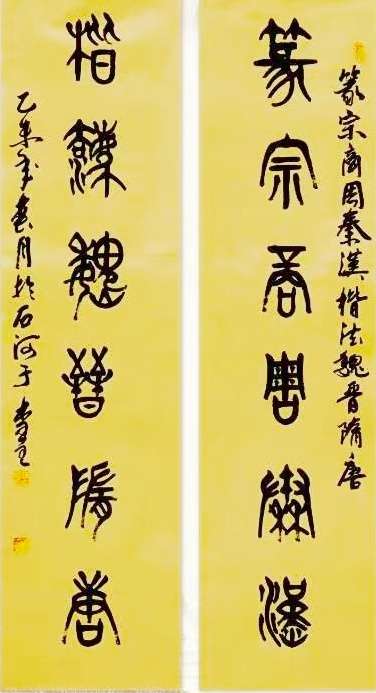 篆宗商周秦漢楷法魏晉隋唐
篆宗商周秦漢
楷法魏晉隋唐
乙未年春月於石河子